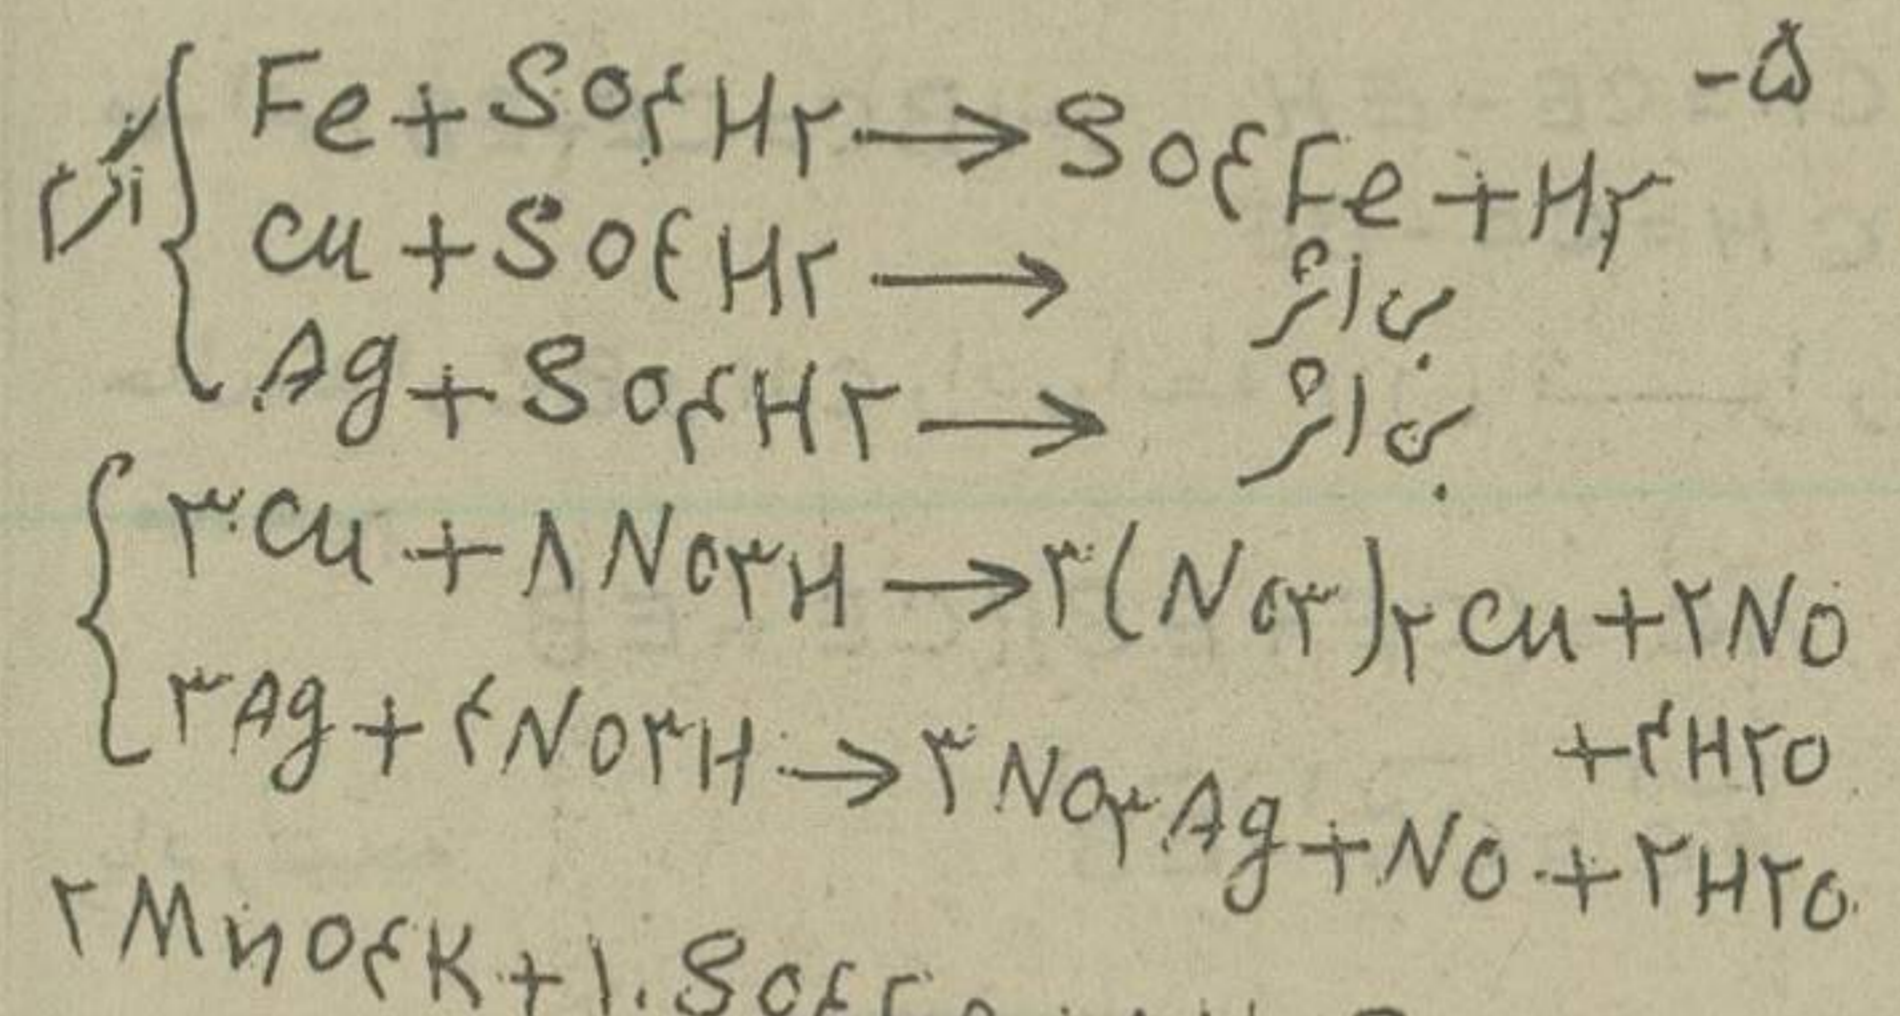 ۵-
Fe + SO۴H۲ → SO۴Fe + H۲
Cu + SO۴H۲ → بی اثر
Ag + SO۴H۲ → بی اثر
۳Cu + ۸NO۳H → ۳(NO۳)۲Cu + ۲NO
+۴H۲O
۳Ag + ۴NO۳H → ۳NO۳Ag + NO + ۲H۲O
۲MnO۴K + ۱۰SO۴Fe